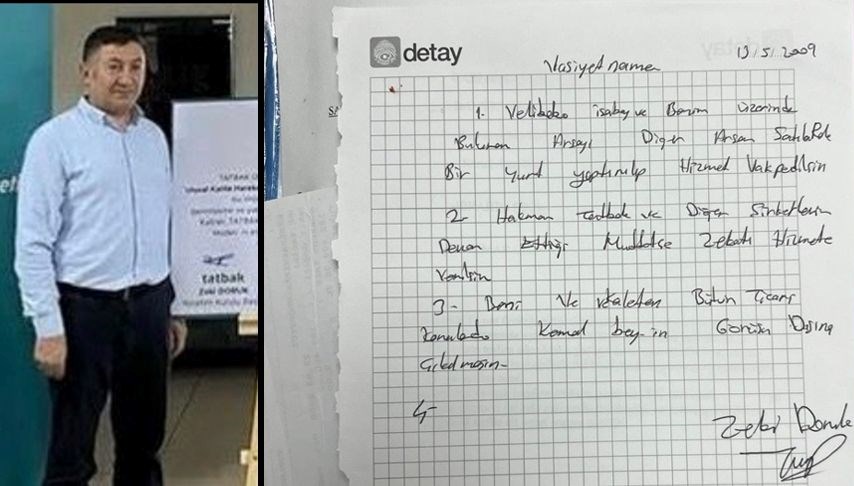 TATBAK
Ulusal Kalite Hareke
tatbak
Zeki DORUK
Yönetim Kurulu Baş
detay
Vasiyetname
13/5/2009
1. Velibaba isabey ve Benim üzerinde
Bulunan Arsayı Diğer Arsam Satılarak
Bir yurt yaptırılıp Hizmet Vakfedilsin
2- Hakman tatbak ve Diğer Şirketlerin
Devam Ettiği Müddetçe Zekatı Hizmete
Verilsin
3- Beni Ve vekaleten Bütün Ticari
konularda Kemal bey-in Görüşü Dışına
Çıkılmasın-
4-
Zeki Doruk